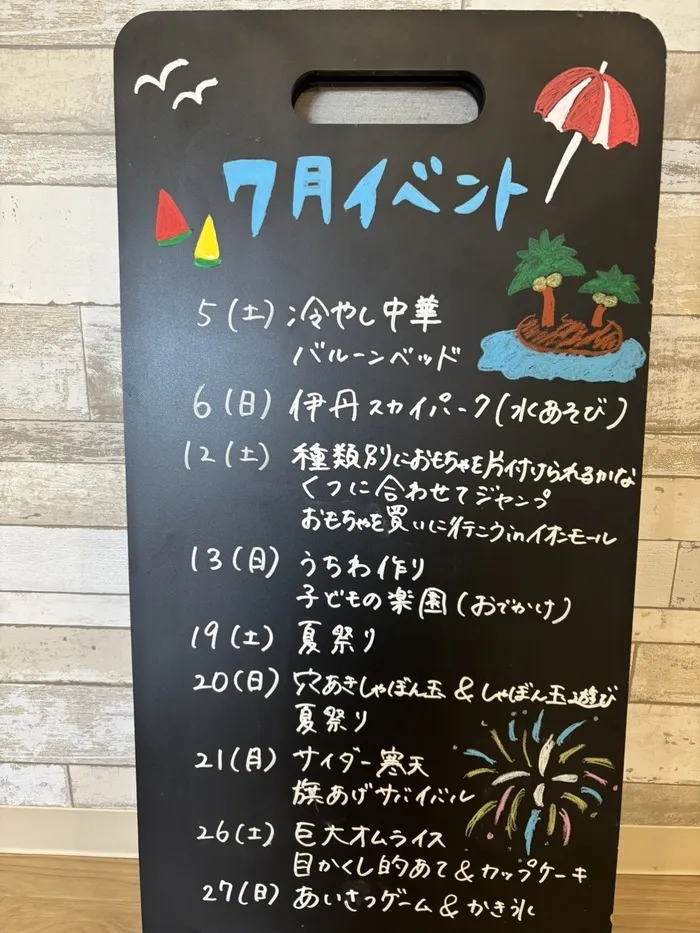 7月イベント
5(土) 冷やし中華
バルーンベッド
6(日) 伊丹スカイパーク(水あそび)
12(土) 種類別におもちゃを片付けられるかな
くつに合わせてジャンプ
おもちゃを買いに行こうinイオンモール
13(日) うちわ作り
子どもの楽園(おでかけ)
19(土) 夏祭り
20(日) 穴あきしゃぼん玉 & しゃぼん玉遊び
夏祭り
21(月) サイダー寒天
旗あげサバイバル
26(土) 巨大オムライス
目かくし的あて & カップケーキ
27(日) あいさつゲーム & かき氷